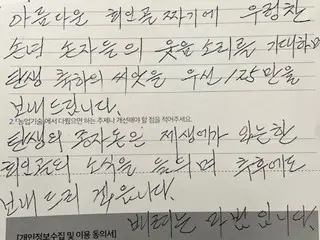 아름다운 회인골 짜기에 우렁찬
손녀 손자들의 웃을 소리를 기대하며
탄생 축하의 씨앗을 우선 125만을
보내드립니다.
2.「농업기술」에서 다뤘으면 하는 주제나 개선해야 할 점을 적어주세요.
탄생의 종자돈은 제생애가 있는한
회인골의 소식을 들으며 축후에도
보내 드리 겠읍니다.
는 과법 입니다.
[개인정보수집 및 이용 동의서]